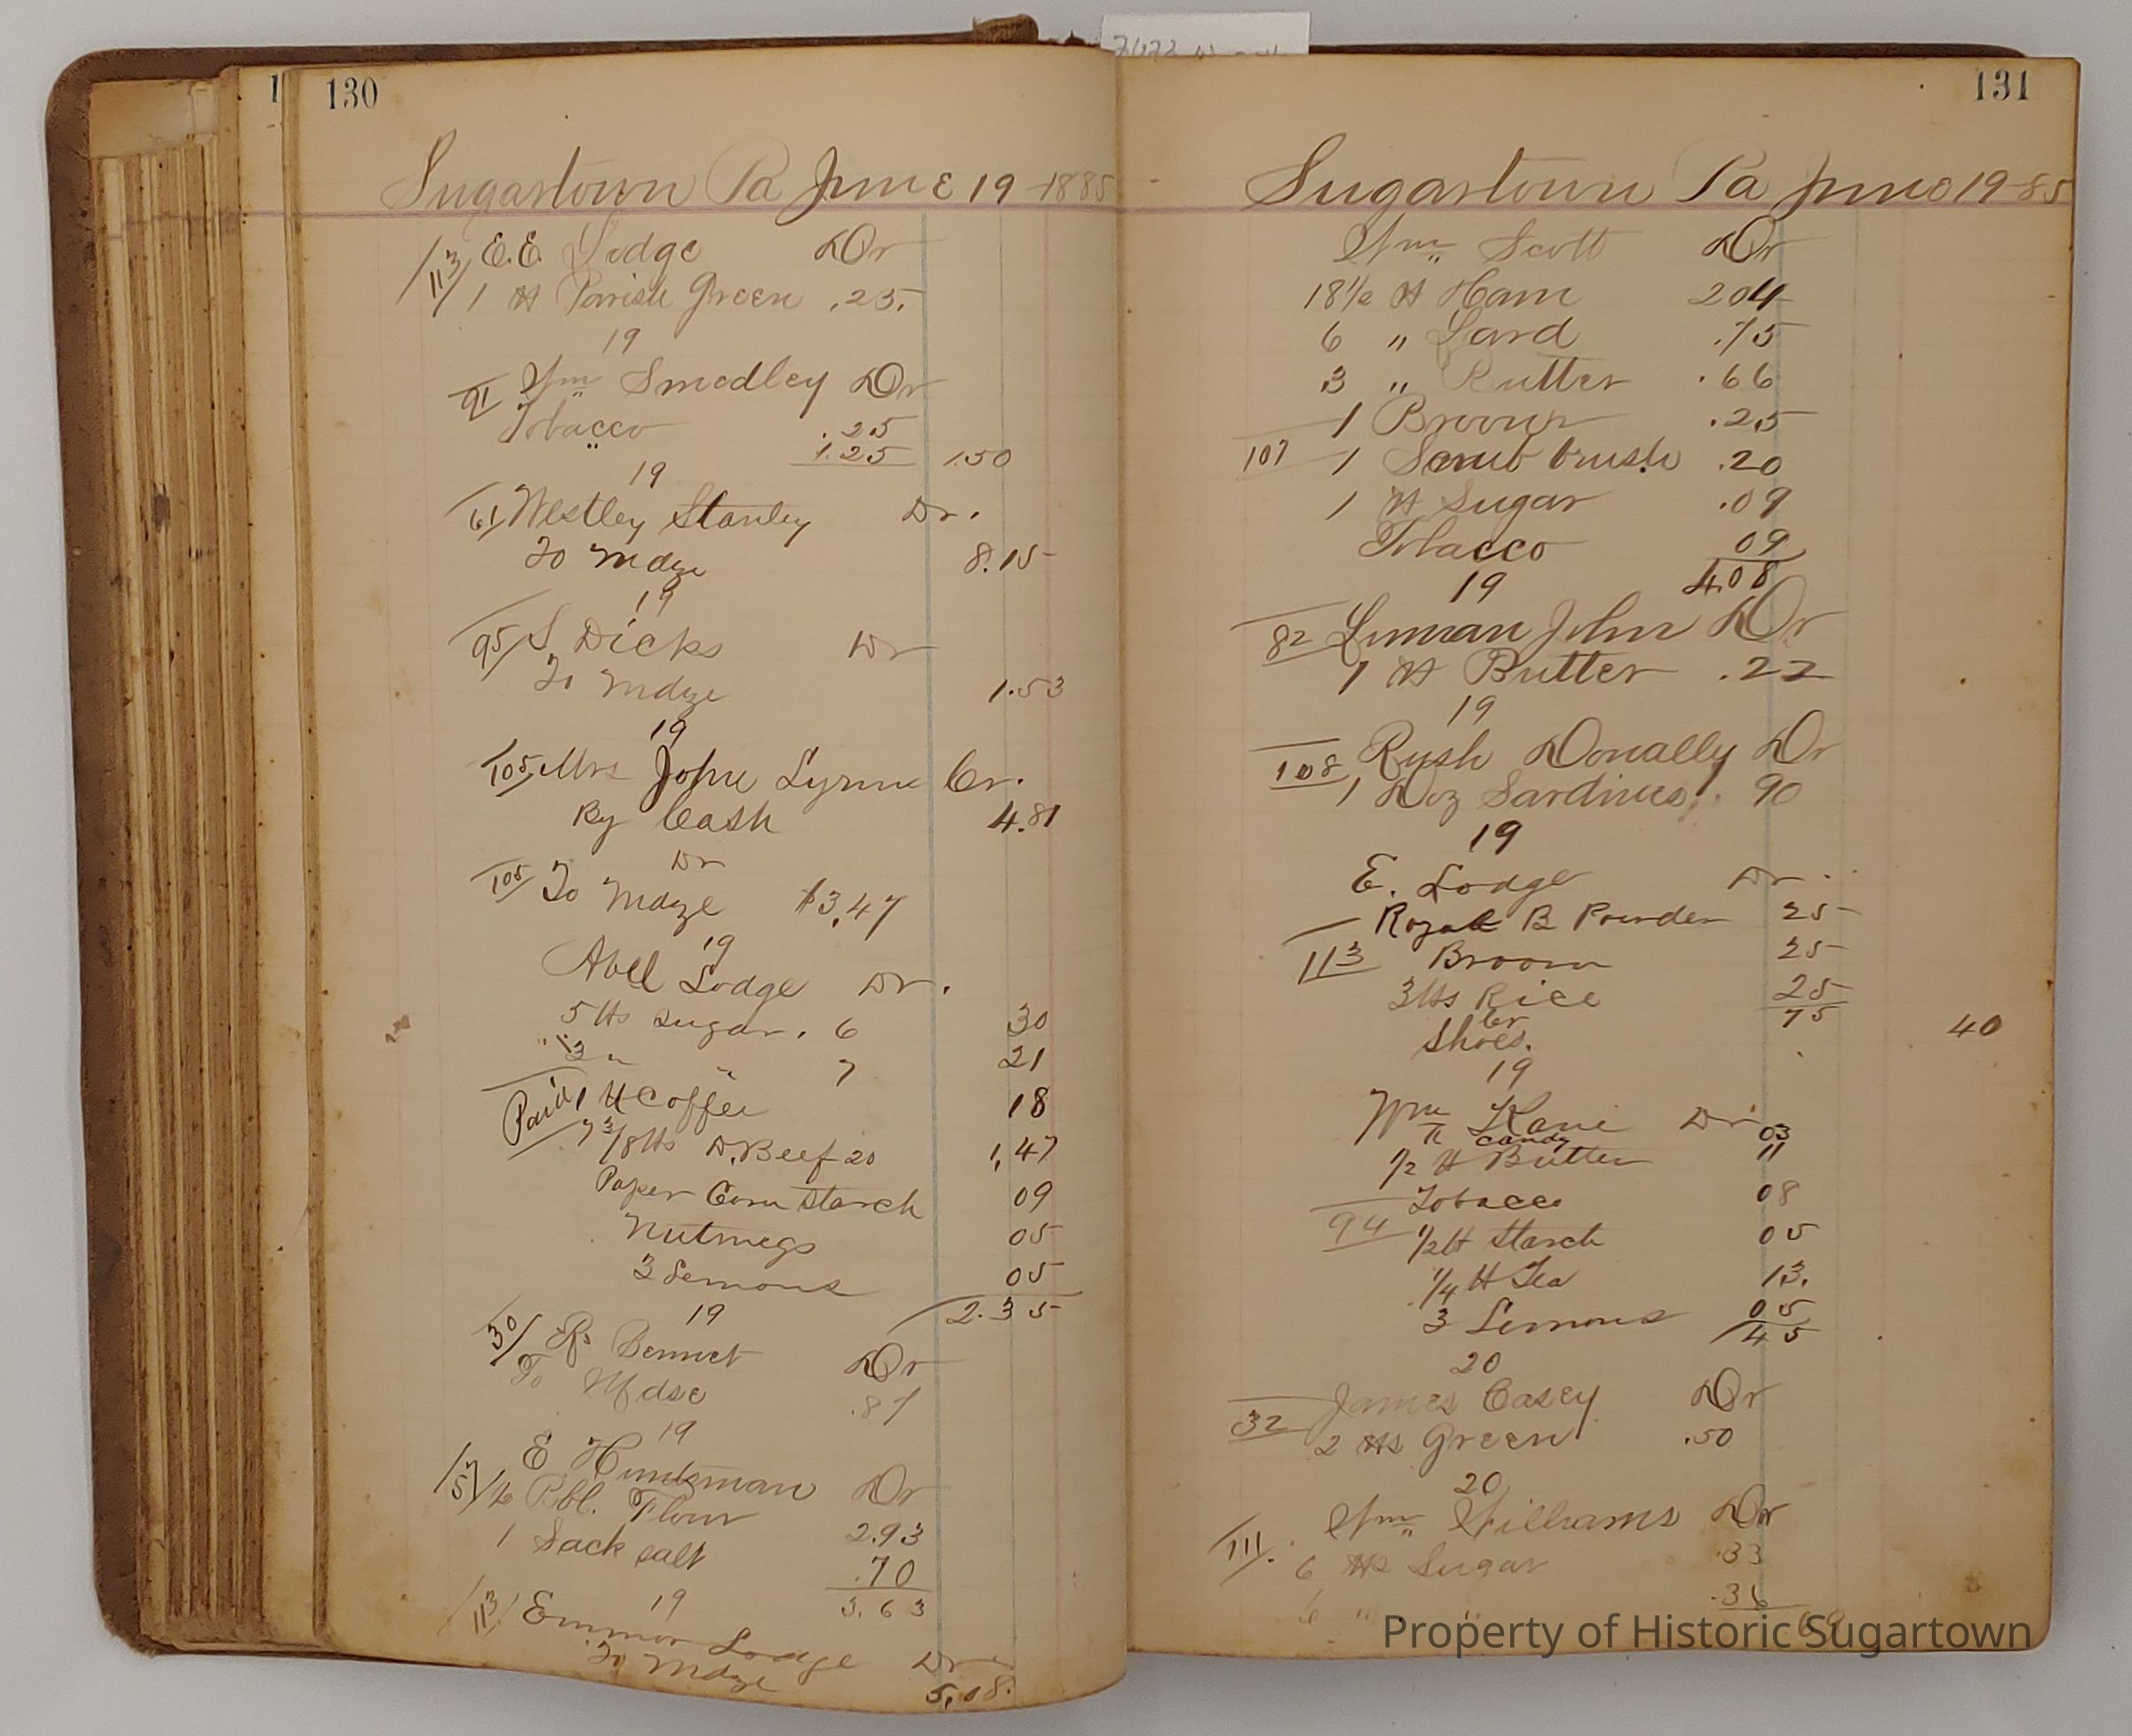 130
Sugartown Pa June 19 1885
113 E.E. Lodge Dr
1 ℔ Parish Green .25.
19
91 Wm Smedley Dr
Tobacco .25
" 1.25 1.50
19
61 Westley Stanley Dr.
To Mdze 8.15
19
95 S Dicks Dr
To Mdze 1.53
19
105 Mrs John Lynn Cr.
By Cash 4.81
Dr
105 To Mdze $3.47
19
Abel Lodge Dr.
5 ℔s sugar. 6 30
" 3 " " 7 21
Paid 1 ℔ Coffee 18
7 3/8 ℔s D. Beef 20 1,47
Paper Corn Starch 09
Nutmegs 05
3 Lemons 05
2.35
19
30 R. Bennet Dr
To Mdse .87
19
57 E Huntsman Dr
Bbl. Flour 2.93
1 Sack salt .70
3.63
19
113 Emmor Lodge Dr
To Mdze 5,08.
131
Sugartown Pa June 19-85
Wm Scott Dr
18 1/2 ℔ Ham 204
6 " Lard .75
3 " Butter .66
1 Broom .25
107 1 Scrub brush .20
1 ℔ Sugar .09
Tobacco 09
4.08
19
82 Liman John Dr
1 ℔ Butter .22
19
108 Rush Donally Dr
1 Doz Sardines 90
19
E. Lodge Dr
Royal B Powder 25
113 Broom 25
3 ℔s Rice 25
75
Cr
Shoes. 40
19
Wm Kane Dr
candy 03
1/2 ℔ Butter 11
Tobacco 08
94 1/2 ℔ Starch 05
1/4 ℔ Tea 13.
3 Lemons 05
45
20
James Casey Dr
32 2 ℔s Green .50
20
Wm Williams Dr
111. 6 ℔s Sugar .33
6 " " .36
69
Property of Historic Sugartown